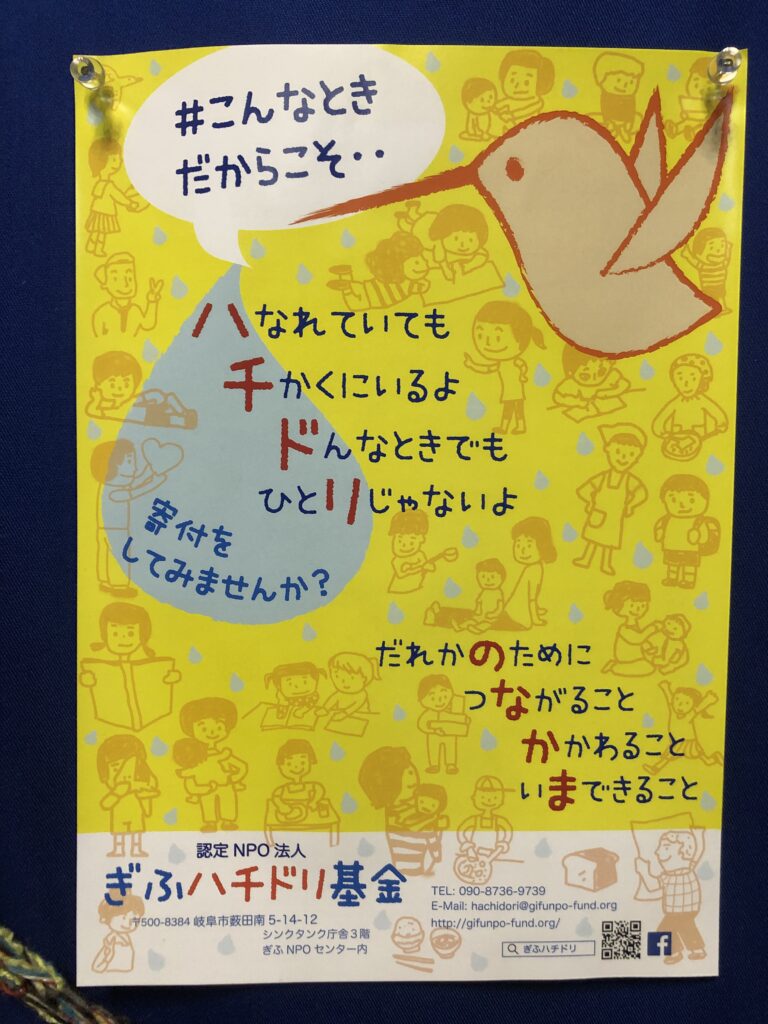 #こんなとき
だからこそ・・
ハなれていても
チかくにいるよ
ドんなときでも
ひとリじゃないよ
寄付を
してみませんか？
だれかのために
つながること
かかわること
いまできること
認定NPO法人
ぎふハチドリ基金
〒500-8384 岐阜市薮田南5-14-12
シンクタンク庁舎3階
ぎふNPOセンター内
TEL: 090-8736-9739
E-Mail: hachidori@gifunpo-fund.org
http://gifunpo-fund.org/
ぎふハチドリ
f